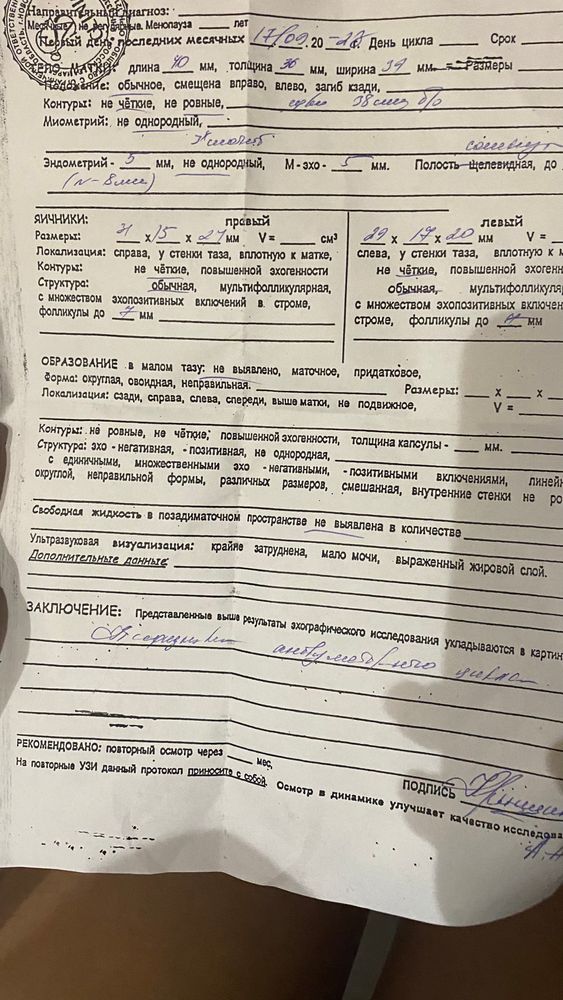 Направительный диагноз:
Месячные не регулярные. Менопауза ___ лет
Первый день последних месячных 17/09.20 г. День цикла ___ Срок
ТЕЛО МАТКИ: длина 40 мм, толщина 36 мм, ширина 39 мм. Размеры
Положение: обычное, смещена вправо, влево, загиб кзади,
Контуры: не чёткие, не ровные,
Миометрий: не однородный,
Эндометрий - 5 мм, не однородный, М-эхо - 5 мм. Полость щелевидная, до
(N-8мм)
ЯИЧНИКИ: правый
Размеры: 31 x 15 x 27 мм V = ___ см³
Локализация: справа, у стенки таза, вплотную к матке,
Контуры: не чёткие, повышенной эхогенности
Структура: обычная, мультифолликулярная,
с множеством эхопозитивных включений в строме,
фолликулы до 7 мм
левый
29 x 17 x 20 мм V =
слева, у стенки таза, вплотную к м
не чёткие, повышенной эхоген
обычная, мультифолликуляр
с множеством эхопозитивных включен
строме, фолликулы до 7 мм
ОБРАЗОВАНИЕ в малом тазу: не выявлено, маточное, придатковое,
Форма: округлая, овоидная, неправильная. Размеры: ___ x ___ x
Локализация: сзади, справа, слева, спереди, выше матки, не подвижное, V =
Контуры: не ровные, не чёткие, повышенной эхогенности, толщина капсулы - ___ мм.
Структура: эхо - негативная, - позитивная, не однородная,
с единичными, множественными эхо - негативными, - позитивными включениями, линей
округлой, неправильной формы, различных размеров, смешанная, внутренние стенки не ро
Свободная жидкость в позадиматочном пространстве не выявлена в количестве
Ультразвуковая визуализация: крайне затруднена, мало мочи, выраженный жировой слой.
Дополнительные данные:
ЗАКЛЮЧЕНИЕ: Представленные выше результаты эхографического исследования укладываются в картин
РЕКОМЕНДОВАНО: повторный осмотр через ___ мес,
На повторные УЗИ данный протокол приносите с собой. Осмотр в динамике улучшает качество исследова
ПОДПИСЬ